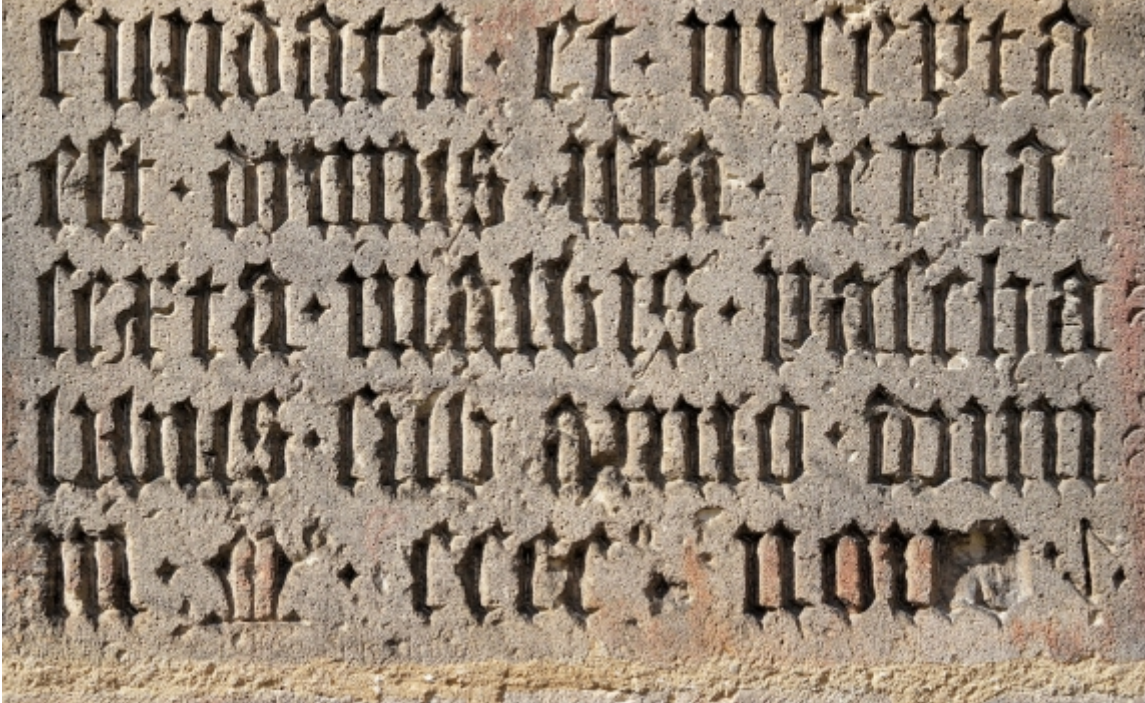 fundata · et · incepta
est · domus · ista · feria
sexta · diebus · pascha
libus · sub anno · domini
m · cccc · non